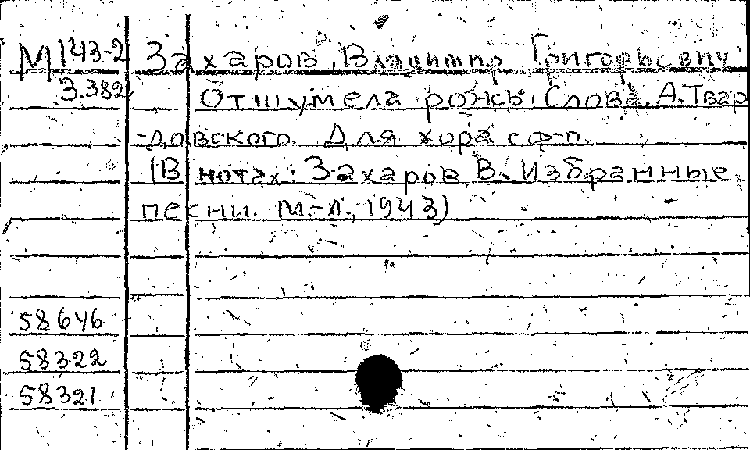 М 143-2 Захаров, Владимир Григорьевич
3.382 Отшумела рожь. Слова А. Твар
довского. Для хора с ф-п.
(В нотах: Захаров В. Избранные
песни. М.-Л., 1943)
58646
58322
58321